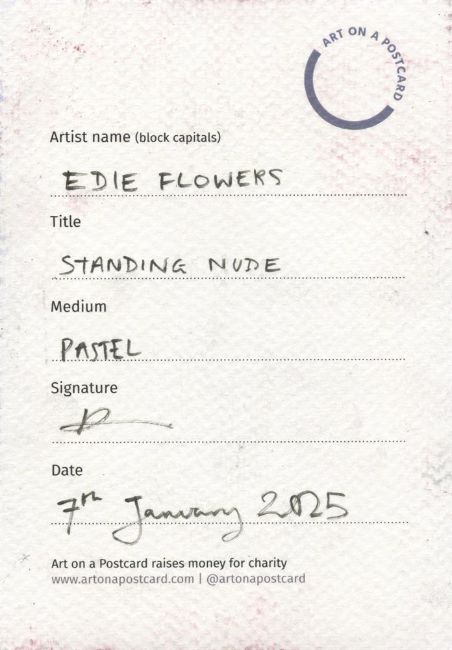 ART ON A POSTCARD
Artist name (block capitals)
EDIE FLOWERS
Title
STANDING NUDE
Medium
PASTEL
Signature
Date
7th January 2025
Art on a Postcard raises money for charity
www.artonapostcard.com | @artonapostcard